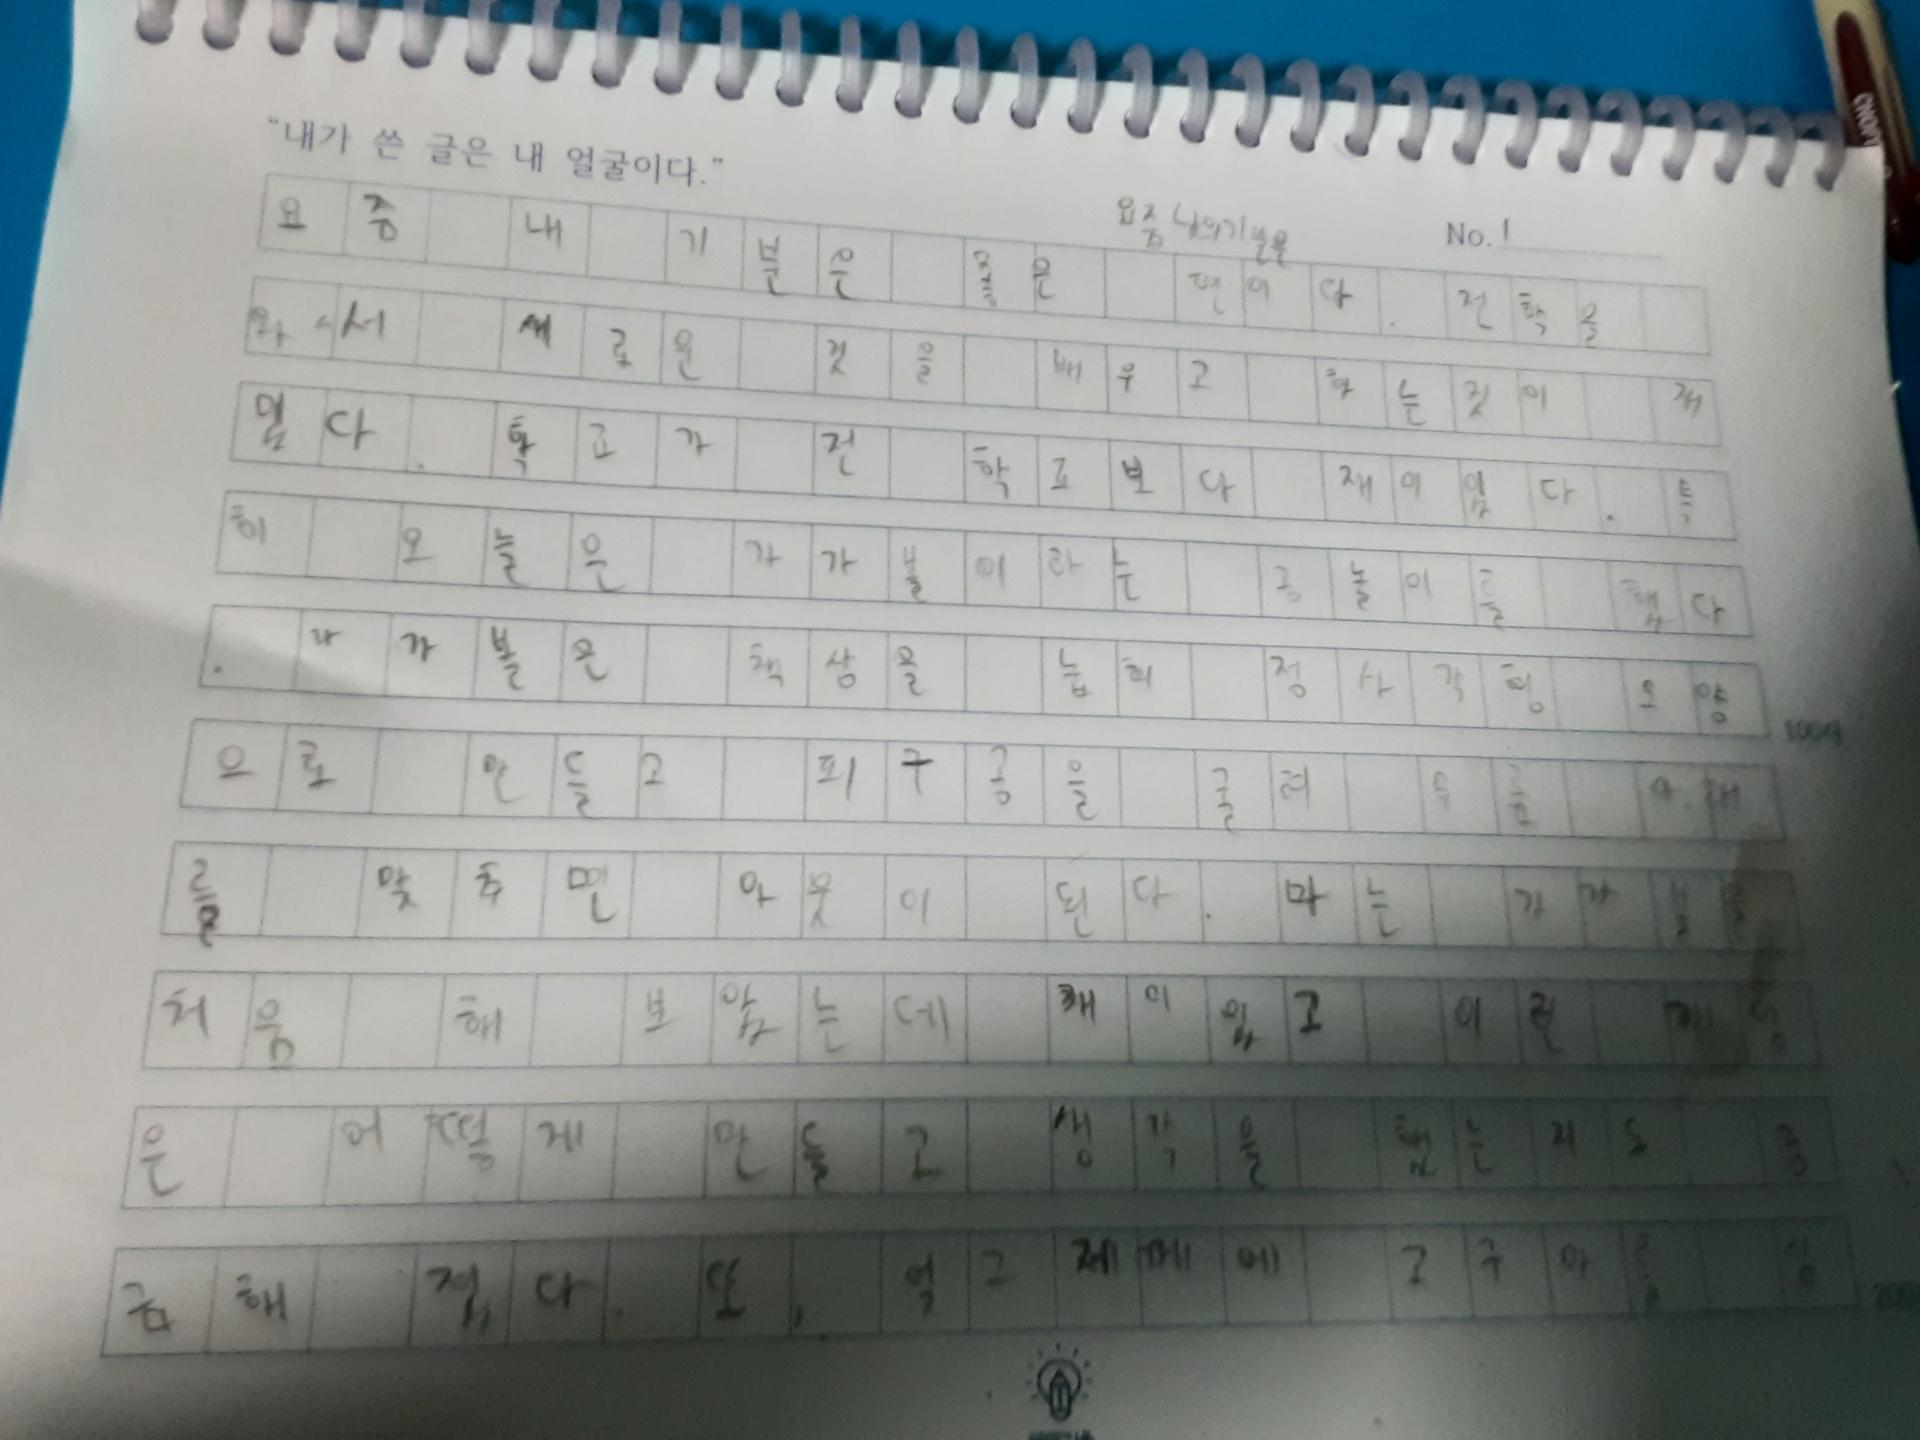 "내가 쓴 글은 내 얼굴이다."
요즘 나의기분은
No. 1
요즘 내 기분은 좋은 편이다. 전학을
와서 새로운 것을 배우고 하는것이 재
밌다. 학교가 전 학교보다 재미있다. 특
히 오늘은 가가볼이라는 공놀이를 했다
. 가가볼은 책상을 눕혀 정사각형 모양
으로 만들고 피구공을 굴려 무릎 아래
를 맞추면 아웃이 된다. 나는 가가볼을
처음 해 보았는데 재미있고 이런
은 어떻게 만들고 생각을 했는지도 궁
금해 졌다. 또, 고구마를 심